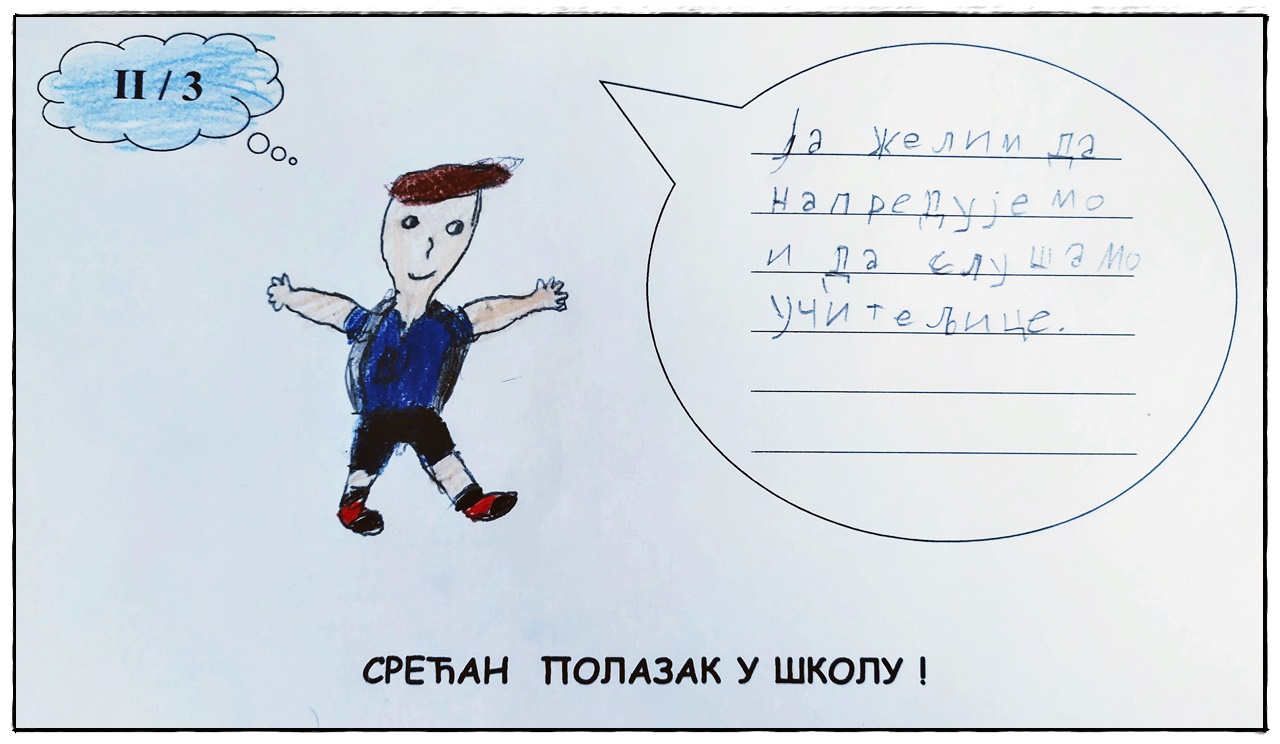 II / 3
Ја желим да
напредујемо
и да слушамо
учитељице.
СРЕЋАН ПОЛАЗАК У ШКОЛУ !